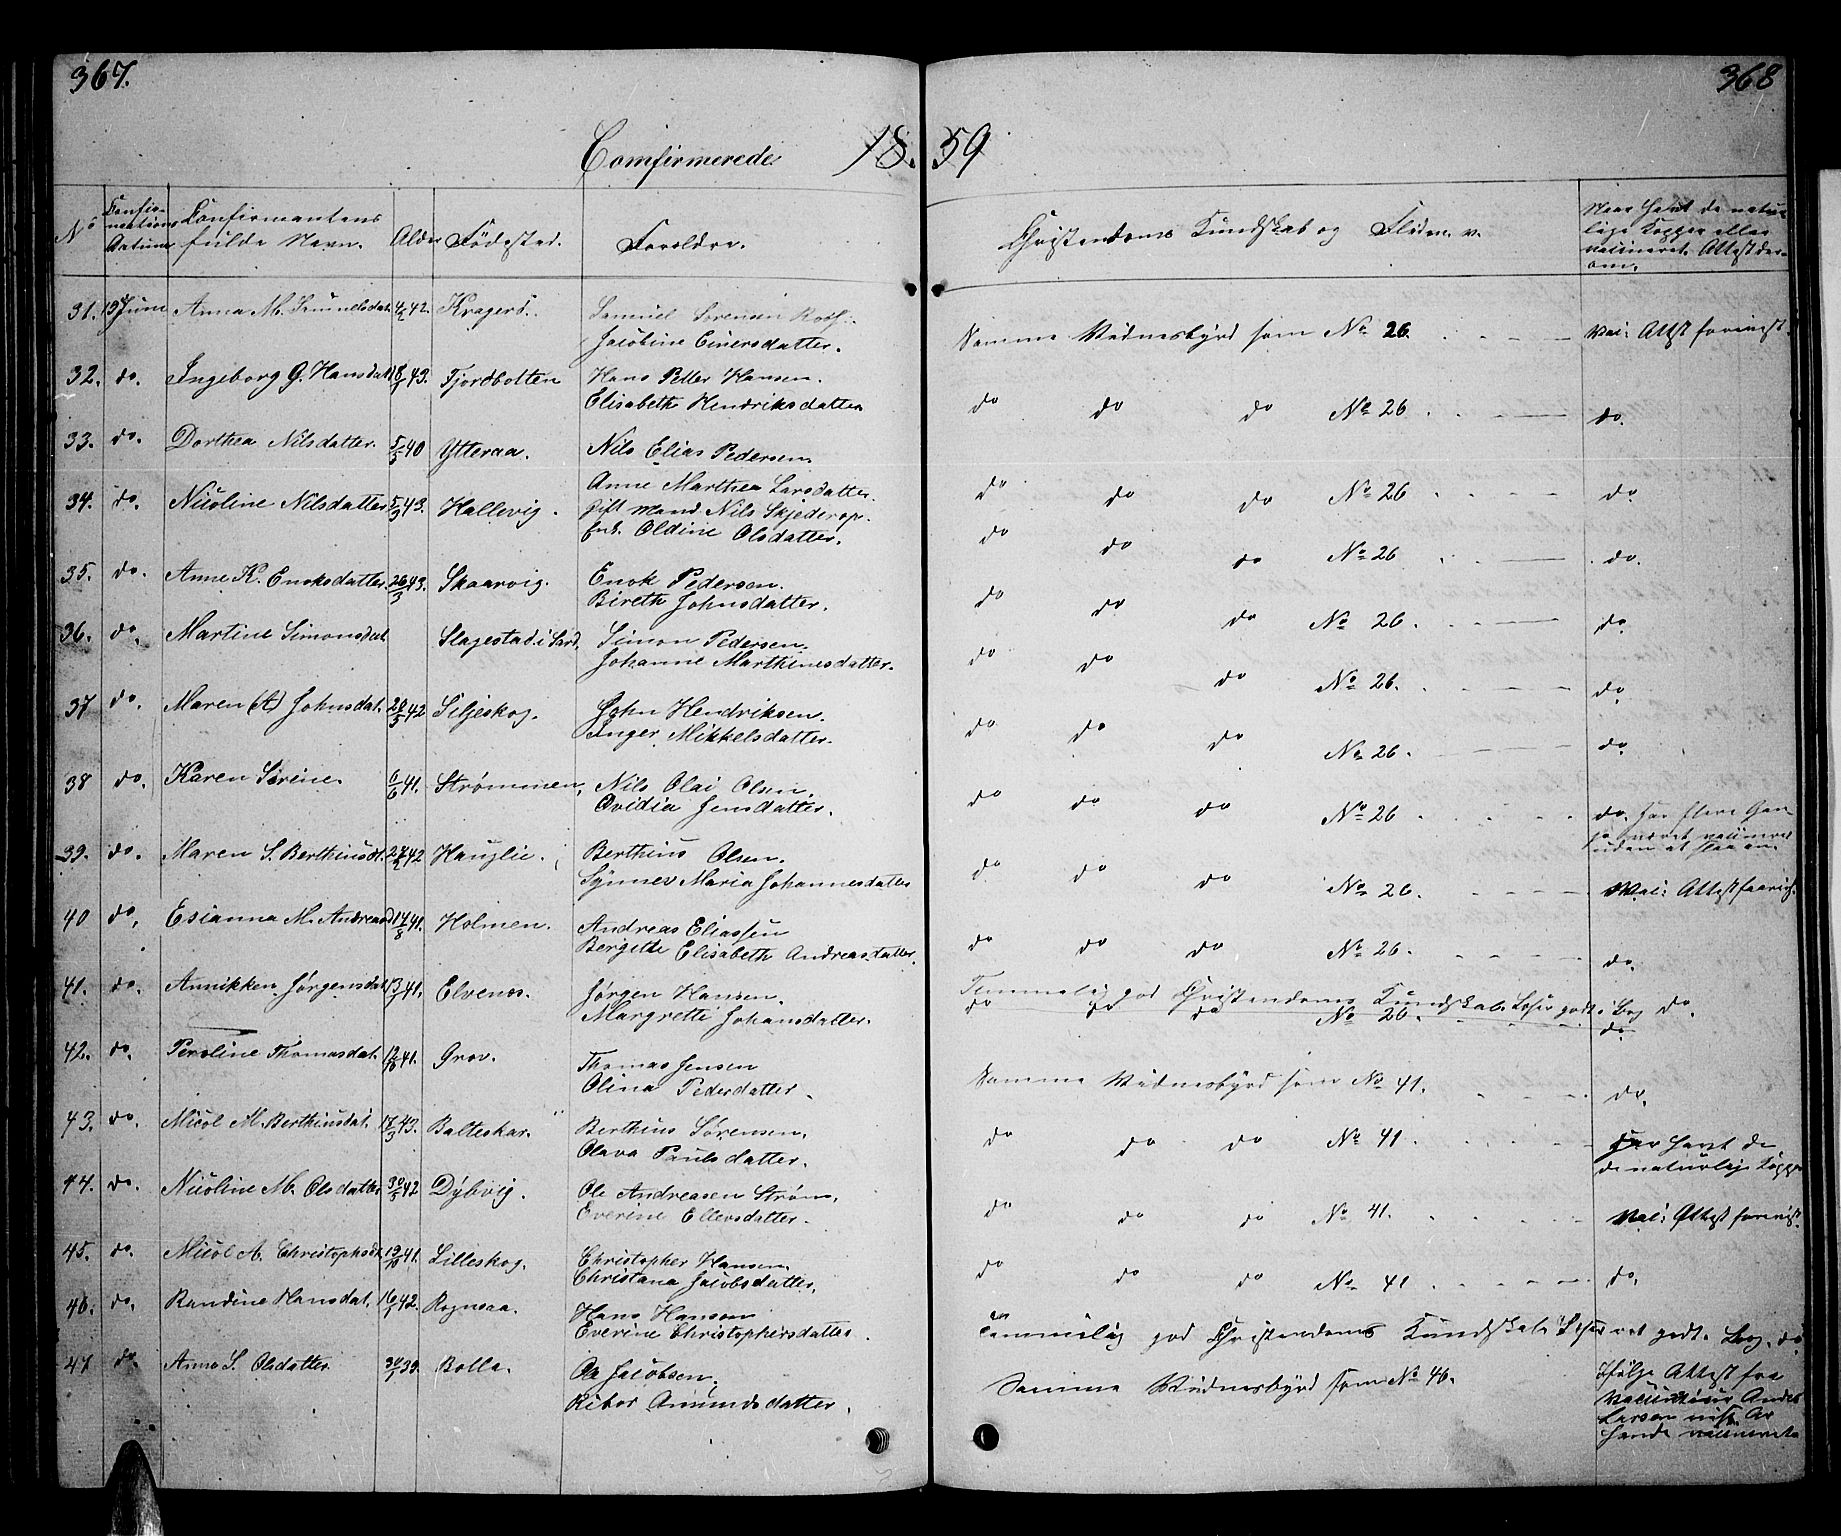 367.
368
Comfirmerede 18. 59
No
Confirmations Datum
Confirmantens fulde Navn.
Alder
Födestad.
Foreldre.
Christendoms Kundskab og Fliden. v.
Naar havt de naturlige Kopper eller vaccineret. Attest derom.
31. 19 Juni Anna M. Samuelsdat. 4/2 42. Kragerö. Samuel Sörensen
Jacobine Einersdatter. Samme Vidnesbyrd som No 26. Vac: Attest forevist.
32. do. Ingeborg G. Hansdat. 18/7 43. Fjordbotten Hans Peter Hansen.
Elisabeth Hendriksdatter do do do No 26. do.
33. do. Dorthea Nilsdatter. 5/3 40 Ytteraa. Nils Elias Pedersen
Anne Marthea Larsdatter. do do do No 26 do.
34. do. Nicoline Nilsdatter 5/3 43. Hallevig. gift mand Nils Skjederop.
Enk. Oldine Olsdatter. do do do No 26 do.
35. do. Anne K. Enoksdatter. 26/3 43. Skaarvig. Enok Pedersen.
Bireth Johnsdatter. do do do No 26. do.
36. do. Martine Simonsdat. Slagestad i Sand. Simon Pedersen.
Johanne Marthinesdatter. do do do No 26. do.
37 do. Maren (A) Johnsdat. 28/5 42 Siljeskog. John Hendriksen.
Inger Mikkelsdatter. do do do No 26. do.
38 do. Karen Sirine. 6/6 41. Strømmen. Nils Olai Olsen.
Ovidia Jensdatter. do do do No 26 do. har flere Gange været vaccineret uden at slaa an.
39. do. Maren S. Berthiusdt. 27/2 42 Hauglie. Berthius Olsen.
Synnev Maria Johannesdatter do. do do No 26. Vac: Attest forevist.
40 do. Esianna M. Andreasd 14/8 41. Holmen. Andreas Eliassen
Bergithe Elisabeth Andreasdatter. do do do No 26. do.
41. do. Annikken Jørgensdat. 13/7 41. Elvenes. Jørgen Hansen.
Margrethe Johansdatter. Temmelig god Christendoms Kundskab. Læser godt i Bog do.
do do do No 26. do.
42. do. Peroline Thomasdat. 12/10 41. Grov. Thomas Jensen
Olina Pedersdatter. Samme Vidnesbyrd som No 41. do.
43. do. Nicol M. Berthiusdat. 17/3 43. Balteskar. Berthius Sørensen.
Olava Paulsdatter. do do do No 41. har havt de
de naturlige Kopper
44. do. Nicoline M. Olsdatter 30/5 42 Dybvig. Ole Andreasen Strøm.
Everine Ellevsdatter. do do do No 41. Vac: Attest forevist.
45. do. Nicol A. Christophsdt. 19/10 41. Lilleskog. Christopher Hansen.
Christana Jacobsdatter. do do do No 41 do.
46. do. Randine Hansdat. 16/1 42. Rognsaa. Hans Hansen
Everine Christophersdatter. Temmelig god Christendoms Kundskab Læser ret godt. Bog. do
47 do. Anna S. Olsdatter 30/1 39. Bolla. Ole Jacobsen.
Ribor Amundsdatter. Samme Vidnesbyrd som No 46. Ifölge Attest fra
Vaccinateur Andes
Larsen